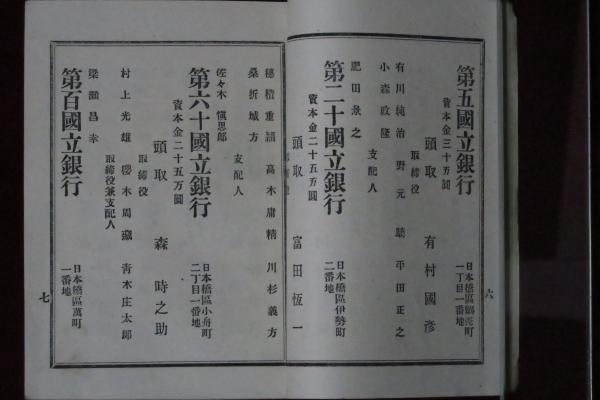 第五國立銀行
資本金三十万圓
日本橋區
一丁目一番地
頭取 有村國彦
取締役
有川純治 野元 平田正之
小森政隆
支配人
肥田景之
第二十國立銀行
資本金二十五万圓
日本橋區伊勢町
二番地
頭取 富田恆一
六
穗積重頴 高木庸精 川杉義方
桑折城方
支配人
佐々木愼思郎
第六十國立銀行
資本金二十五万圓
日本橋區小舟町
二丁目一番地
頭取 森時之助
取締役
村上光雄 櫻木周藏 青木庄太郎
取締役兼支配人
梁瀬昌幸
第百國立銀行
日本橋區萬町
一番地
七